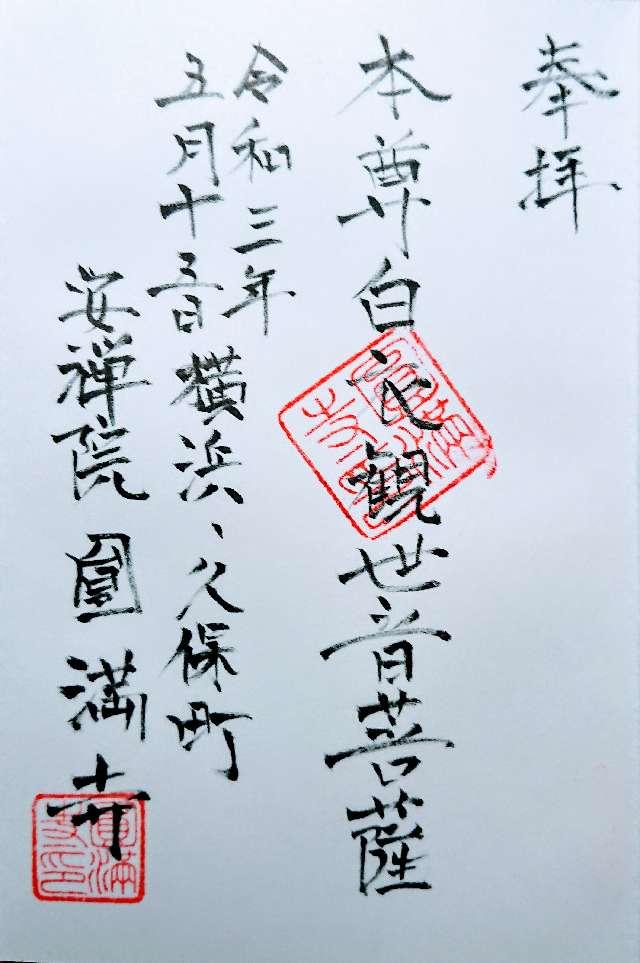 奉拝
本尊白衣観世音菩薩
令和三年
五月十五日横浜、久保町
安禅院圓満寺